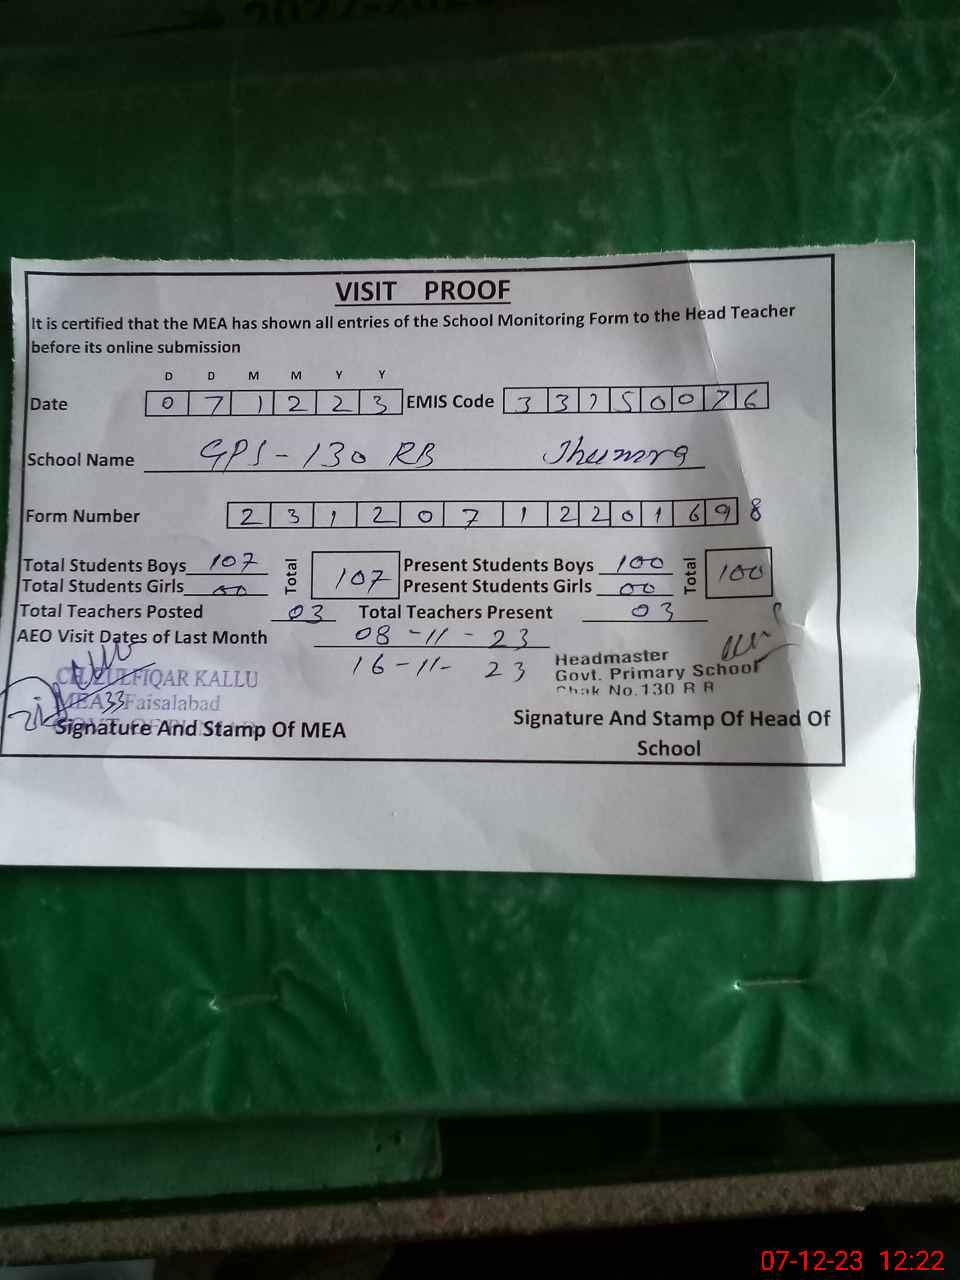 VISIT PROOF
It is certified that the MEA has shown all entries of the School Monitoring Form to the Head Teacher
before its online submission
D D M M Y Y
Date 0 7 1 2 2 3 EMIS Code 3 3 1 5 0 0 7 6
School Name GPS-130 RB Jhumra
Form Number 2 3 1 2 0 7 1 2 2 0 1 6 9 8
Total Students Boys 107 Total 107 Present Students Boys 100 Total 100
Total Students Girls 00 Present Students Girls 00
Total Teachers Posted 03 Total Teachers Present 03
AEO Visit Dates of Last Month 08-11-23
16-11-23
Headmaster
Govt. Primary School
Chak No.130 R B
ZULFIQAR KALLU
MEA33 Faisalabad
Signature And Stamp Of MEA
Signature And Stamp Of Head Of
School
07-12-23 12:22